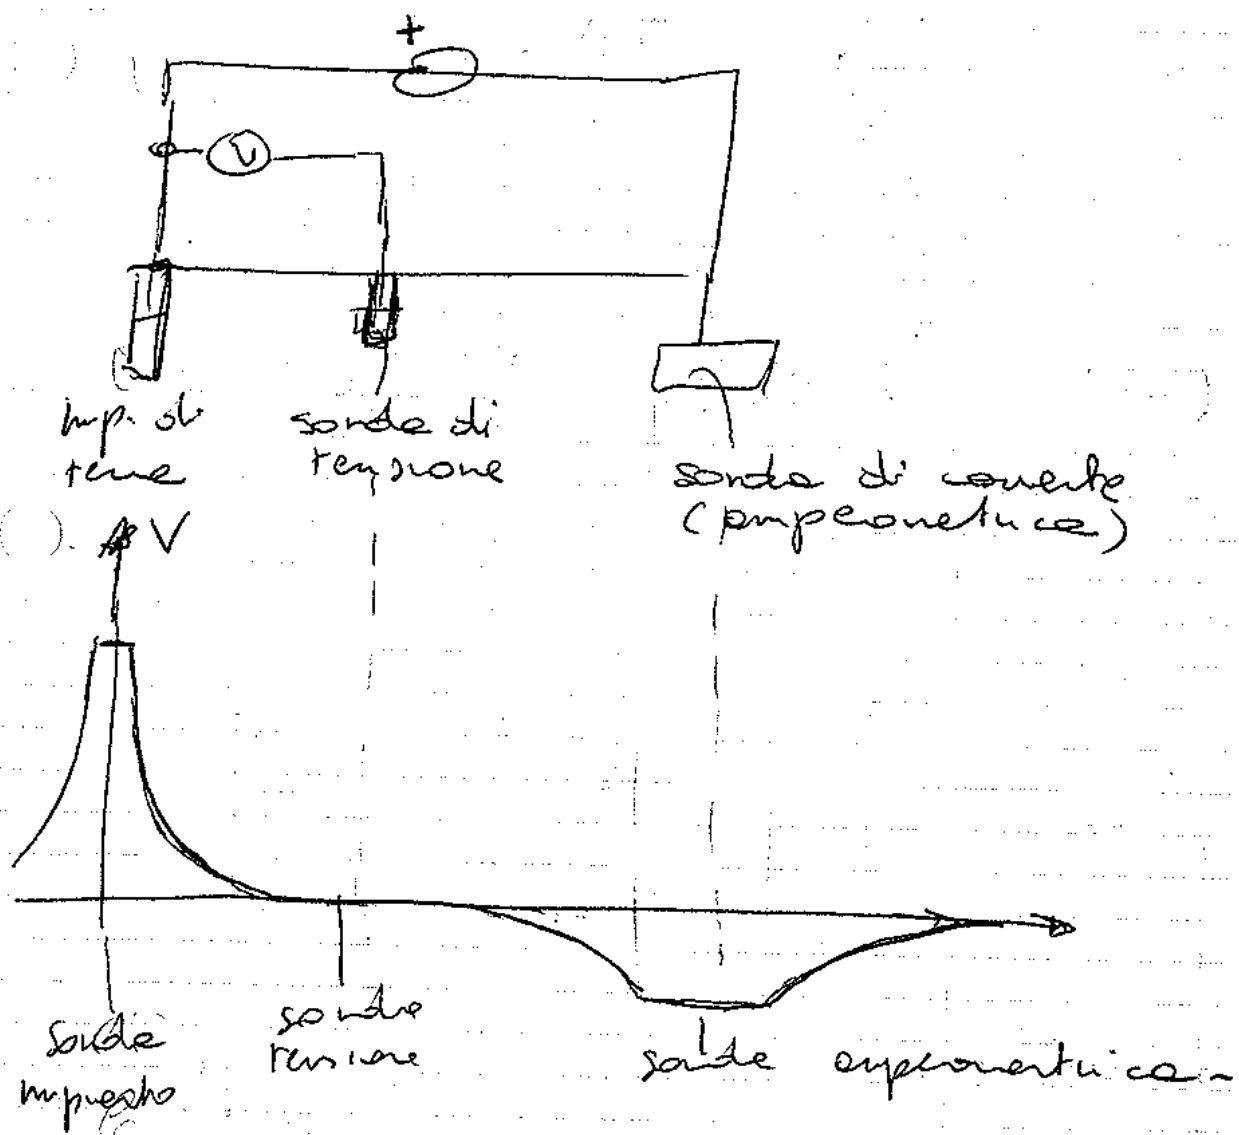 +
V
imp. di
terra
sonda di
tensione
sonda di corrente
(amperometrica)
V
sonda
impianto
sonda
tensione
sonda amperometrica